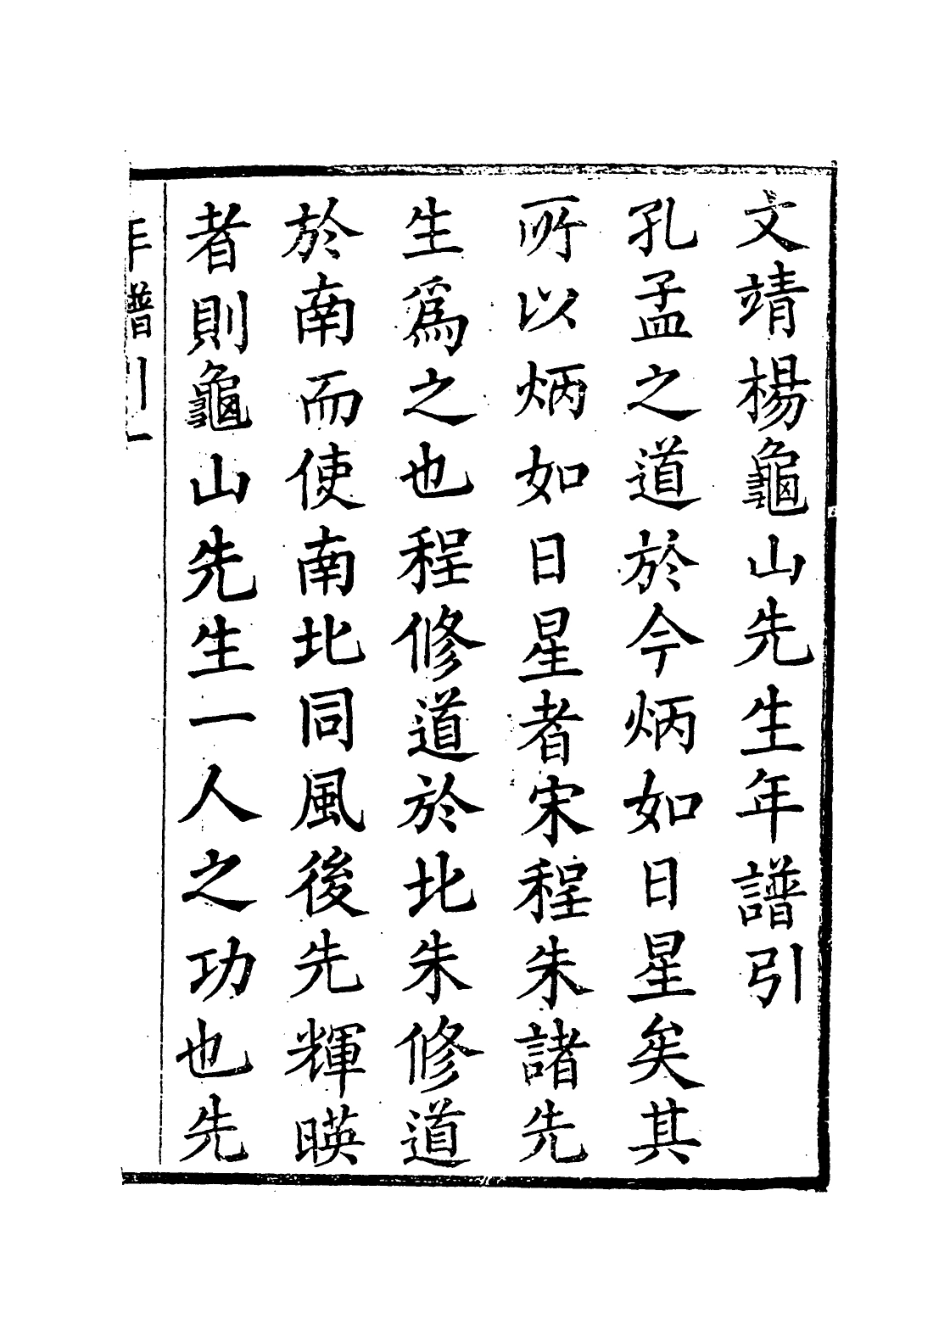 文靖楊龜山先生年譜引
孔孟之道於今炳如日星矣其
所以炳如日星者宋程朱諸先
生爲之也程修道於北朱修道
於南而使南北同風後先輝暎
者則龜山先生一人之功也先
年譜引一